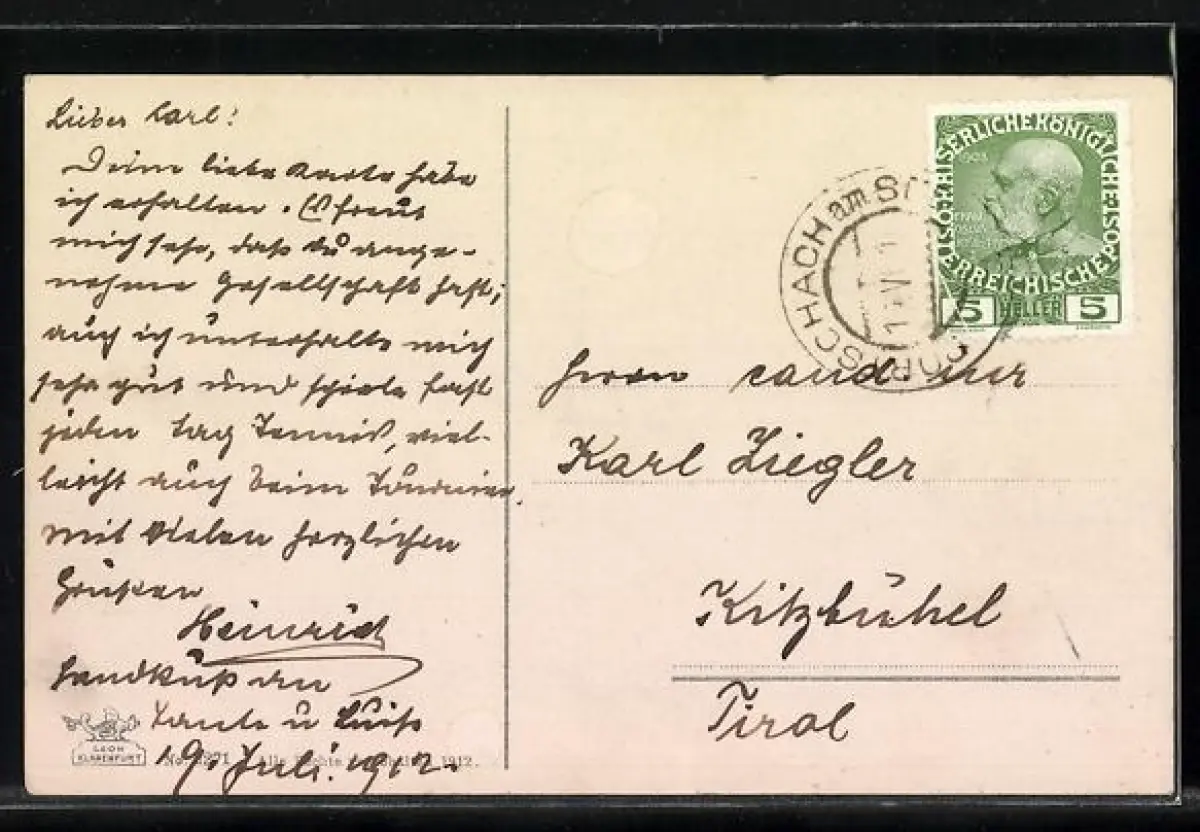 Lieber Karl!
Deine liebe Karte habe
ich erhalten. Es freut
mich sehr, daß du ange-
nehme Gesellschaft hast;
auch ich unterhalte mich
sehr gut und spiele fast
jeden Tag Tennis, viel-
leicht auch beim Turnier.
Mit vielen herzlichen
Grüßen
Heinrich
Handküße an
Tante u Luise
19. Juli. 1912.
LEON
KLAGENFURT
1912.
PÖRTSCHACH am S
KAISERLICHEKÖNIGLICHE
ÖSTERREICHISCHE POST
1908
5 HELLER 5
Herrn cand iur
Karl Ziegler
Kitzbühel
Tirol